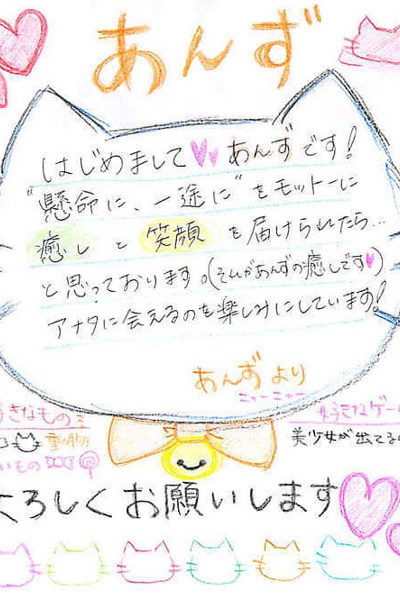 あんず
はじめまして あんずです!
"懸命に、一途に"をモットーに
癒しと笑顔を届けられたら…
と思っております。(それがあんずの癒しです)
アナタに会えるのを楽しみにしています!
あんずより
ニャーニャー
きなもの
動物
いもの
好きなゲー
美少女が出てる
よろしくお願いします